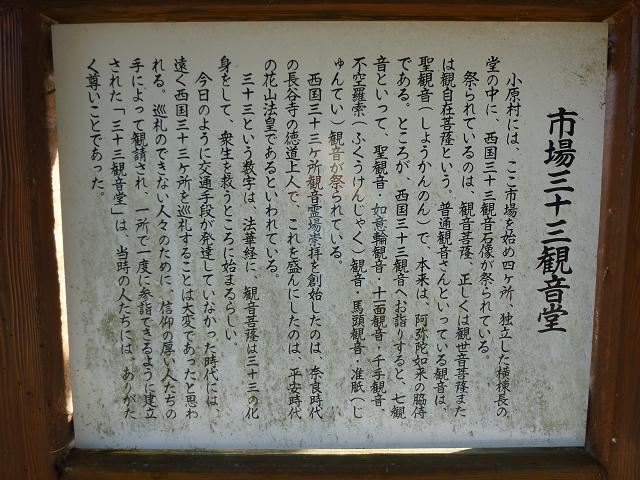 市場三十三観音堂
小原村には、ここ市場を始め四ヶ所、独立した横棟長の
堂の中に、西国三十三観音石像が祭られている。
祭られているのは、観音菩薩、正しくは観世音菩薩また
は観自在菩薩という。普通観音さんといっている観音は、
聖観音（しょうかんのん）で、本来は、阿弥陀如来の脇侍
である。ところが、西国三十三観音へお詣りすると、七観
音といって、聖観音・如意輪観音・十一面観音・千手観音、
不空羅索（ふくうけんじゃく）観音・馬頭観音・准胝（じ
ゅんてい）観音が祭られている。
西国三十三ヶ所観音霊場崇拝を創始したのは、奈良時代
の長谷寺の徳道上人で、これを盛んにしたのは、平安時代
の花山法皇であるといわれている。
三十三という数字は、法華経に、観音菩薩は三十三の化
身をして、衆生を救うところに始まるらしい
今日のように交通手段が発達していなかった時代には、
遠く西国三十三ヶ所を巡礼することは大変であったと思わ
れる。巡礼のできない人々のために、信仰の厚い人たちの
手によって観請され、一所で一度に参詣できるように建立
された「三十三観音堂」は、当時の人たちには、ありがた
く尊いことであった。